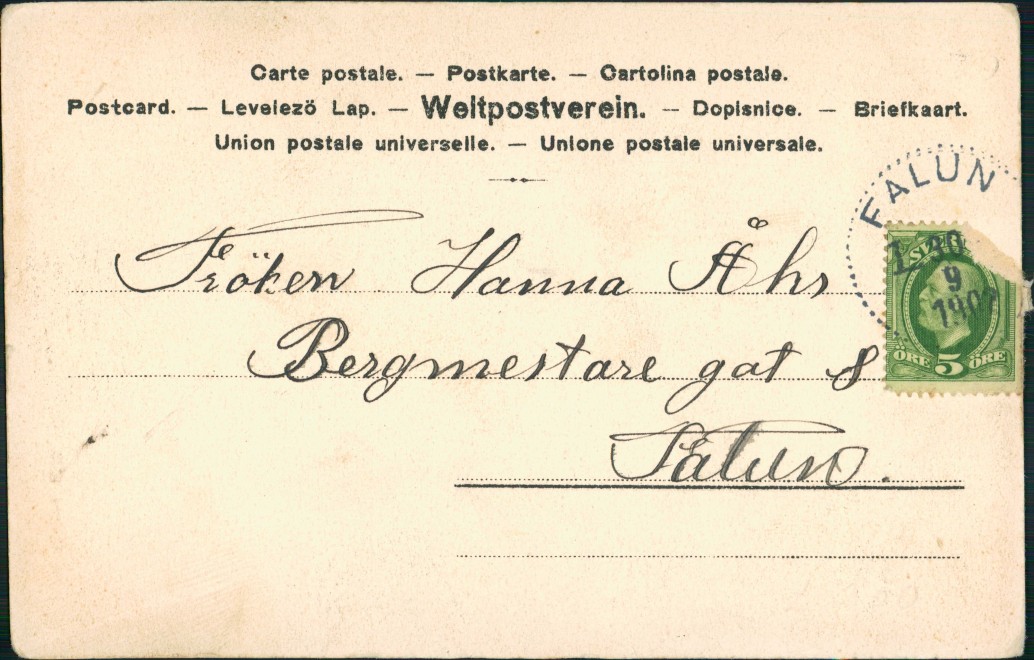 Carte postale. — Postkarte. — Cartolina postale.
Postcard. — Levelezö Lap. — Weltpostverein. — Dopisnice. — Briefkaart.
Union postale universelle. — Unione postale universale.
FALUN
30
9
Fröken Hanna Åhs
Bergmestare gat 8
ÖRE 5 ÖRE
Falun.